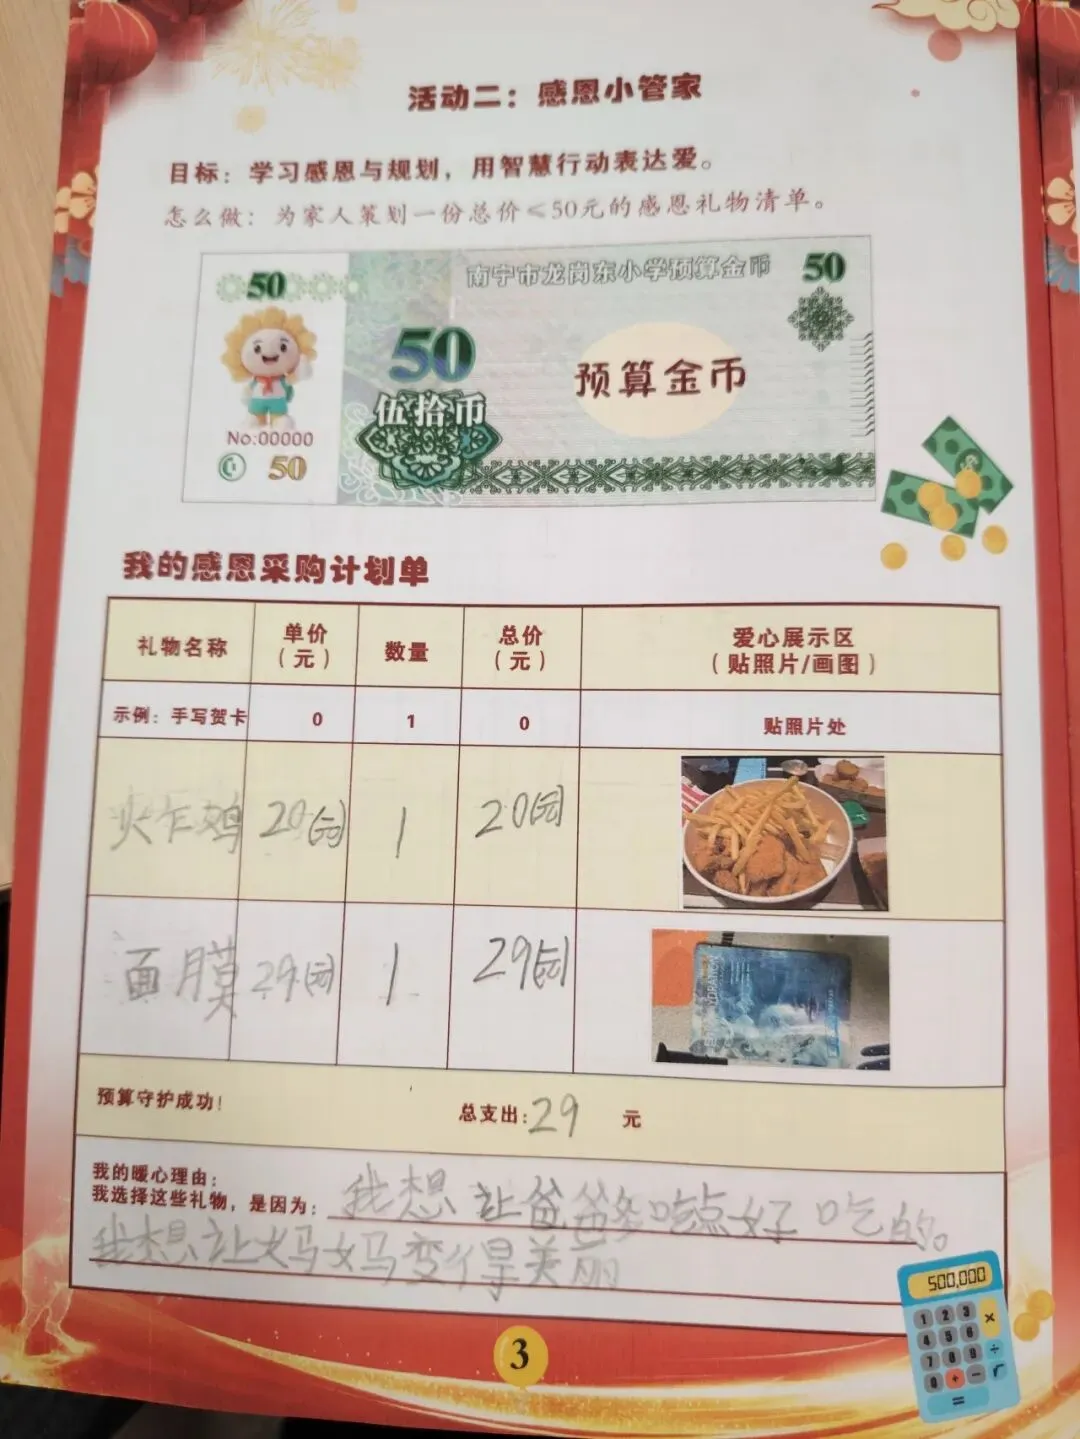 活动二：感恩小管家
目标：学习感恩与规划，用智慧行动表达爱。
怎么做：为家人策划一份总价≤50元的感恩礼物清单。
50
南宁市龙岗东小学预算金币
50
50
伍拾币
预算金币
No:00000
50
我的感恩采购计划单
礼物名称 单价（元） 数量 总价（元） 爱心展示区（贴照片/画图）
示例：手写贺卡 0 1 0 贴照片处
火乍鸡 20(元) 1 20(元)
面膜 29(元) 1 29(元)
预算守护成功！ 总支出：29 元
我的暖心理由：
我选择这些礼物，是因为：我想让爸爸多吃点好吃的。
我想让妈妈变得美丽
500,000
1 2 3 ×
4 5 6
7 8 9 ÷
0 + -
=
3